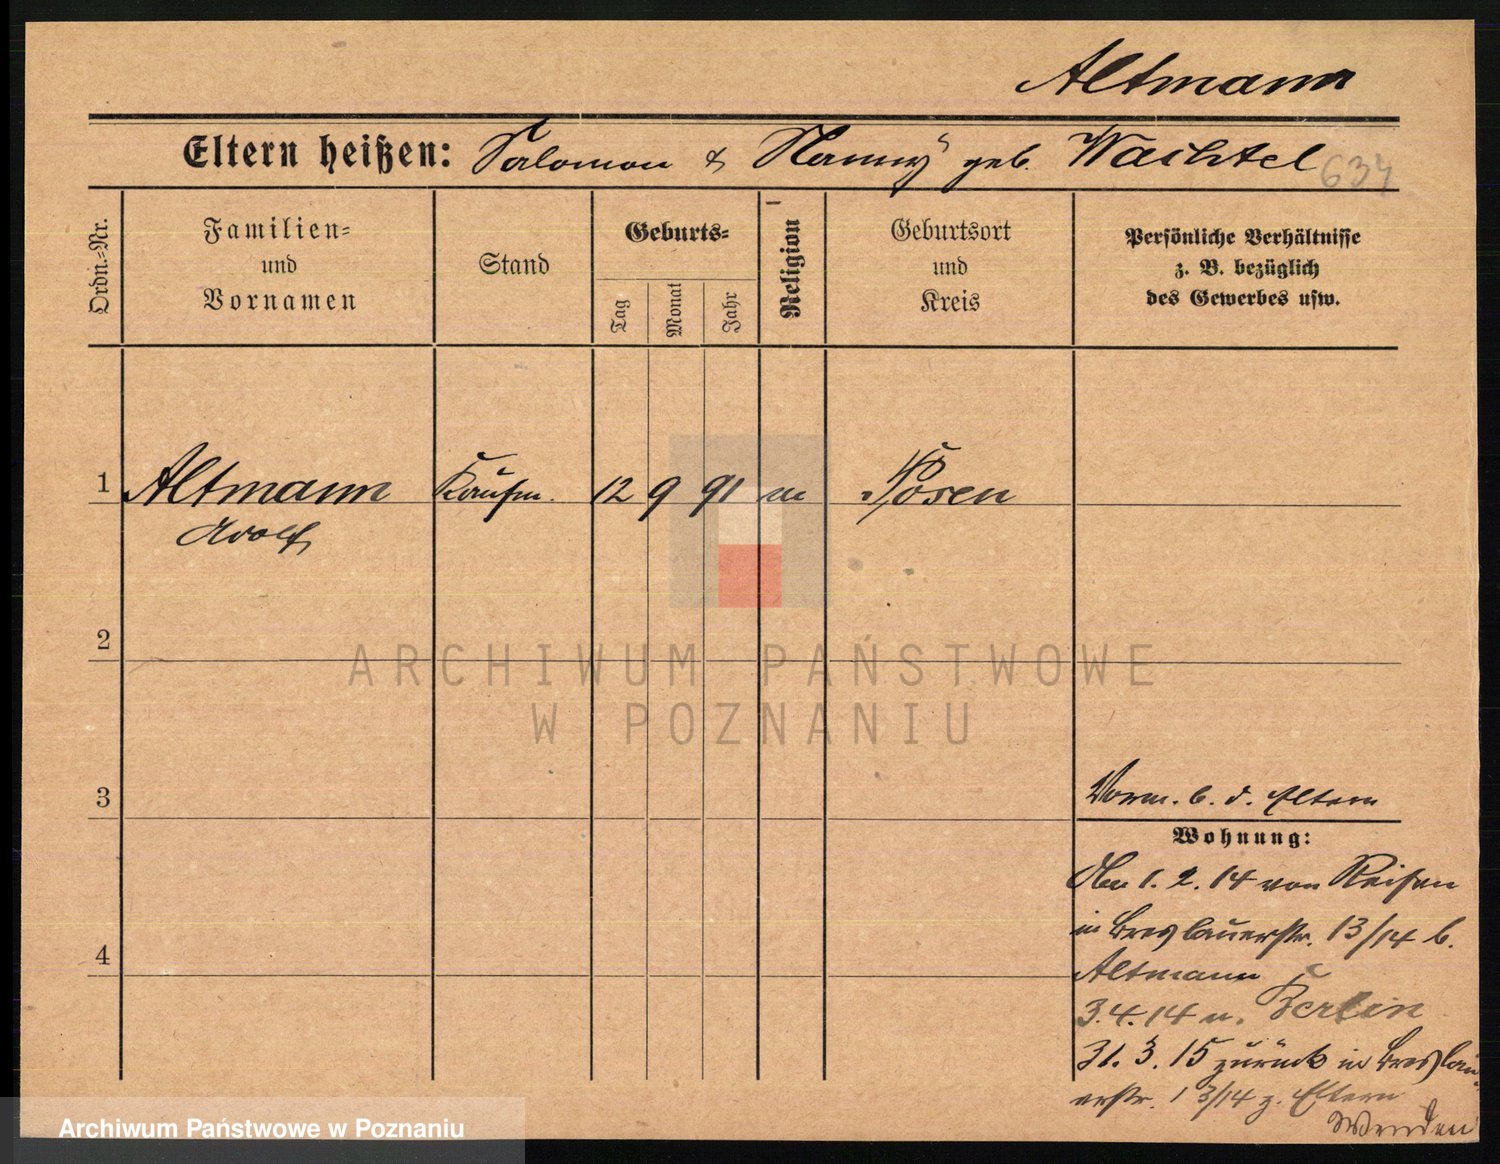 Altmann
Eltern heißen: Salomon & Nanny geb. Wachtel 634
Ordn.-Nr.
Familien-
und
Vornamen
Stand
Geburts-
Tag
Monat
Jahr
Religion
Geburtsort
und
Kreis
Persönliche Verhältnisse
z. B. bezüglich
des Gewerbes usw.
1 Altmann Kaufm. 12 9 91 m Posen
Adolf
2
ARCHIWUM PAŃSTWOWE
W POZNANIU
3
Vorm. b. d. Eltern
Wohnung:
Am 1. 2. 14 von Reisen
in Breslauerstr. 13/14 b.
4
Altmann
3.4.14 n. Berlin
31. 3. 15 zurück in Breslau-
erstr. 13/14 z. Eltern
Wenden
Archiwum Państwowe w Poznaniu